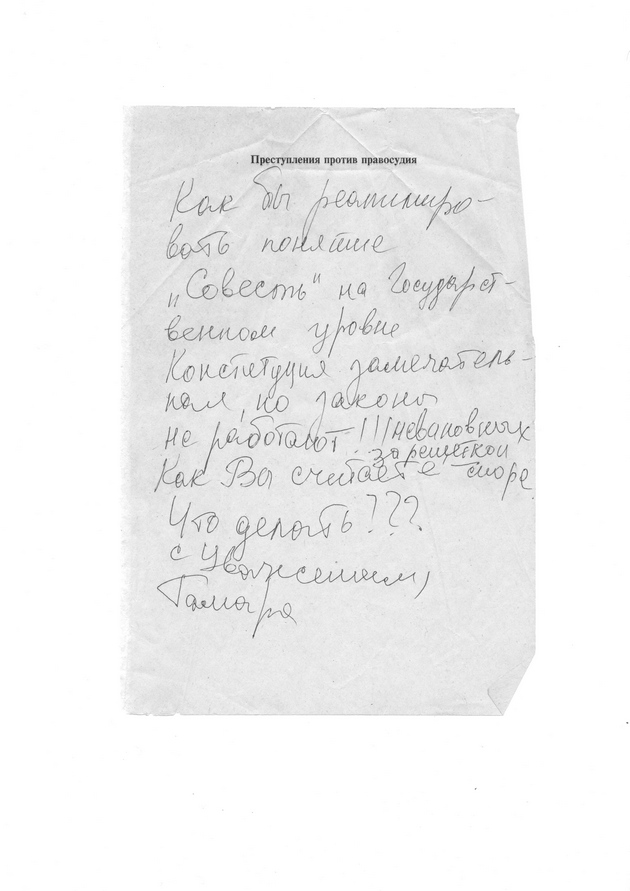 Преступления против правосудия
Как бы реанимиро-
вать понятие
„Совесть" на Государст-
венном уровне
Конституция замечатель-
ная, но законы
не работают!!! невиновных
за решеткой
Как Вы считаете
Что делать???
с уважением,
Тамара